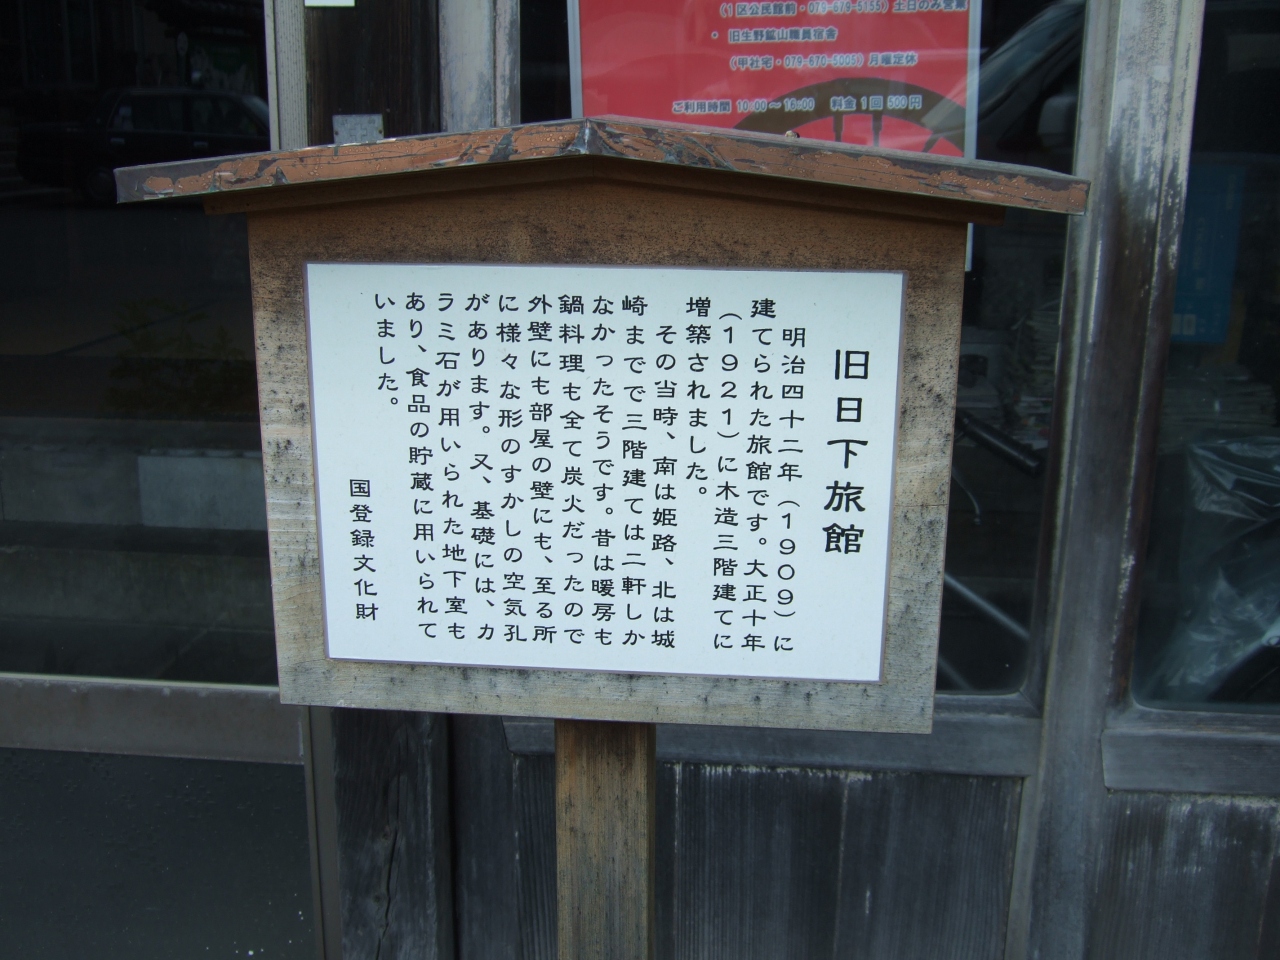 (1区公民館前・079-679-5155) 土日のみ営業
・旧生野鉱山職員宿舎
(甲社宅・079-670-5005) 月曜定休
ご利用時間 10:00～16:00 料金1回 500円
旧日下旅館
明治四十二年（1909）に
建てられた旅館です。大正十年
（1921）に木造三階建てに
増築されました。
その当時、南は姫路、北は城
崎までで三階建ては二軒しか
なかったそうです。昔は暖房も
鍋料理も全て炭火だったので
外壁にも部屋の壁にも、至る所
に様々な形のすかしの空気孔
があります。又、基礎には、カ
ラミ石が用いられた地下室も
あり、食品の貯蔵に用いられて
いました。
国登録文化財